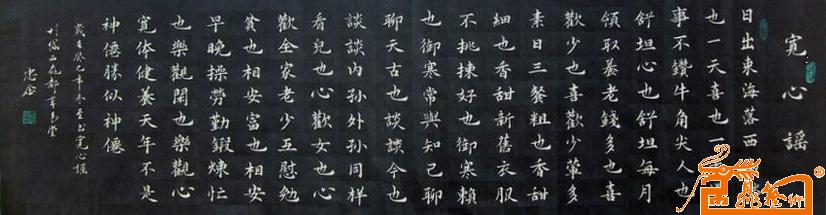 寬心謠
日出東海落西
也一天喜也一
事不鑽牛角尖人也
舒坦心也舒坦每月
領取養老錢多也喜
歡少也喜歡少葷多
素日三餐粗也香甜
細也香甜新舊衣服
不挑揀好也御寒賴
也御寒常與知己聊
聊天古也談談今也
談談內孫外孫同樣
看兒也心歡女也心
歡全家老少互慰勉
貧也相安富也相安
早晚操勞勤鍛煉忙
也樂觀閑也樂觀心
寬体健養天年不是
神僊勝似神僊
歲在癸巳年冬至書寬心謠
忠念